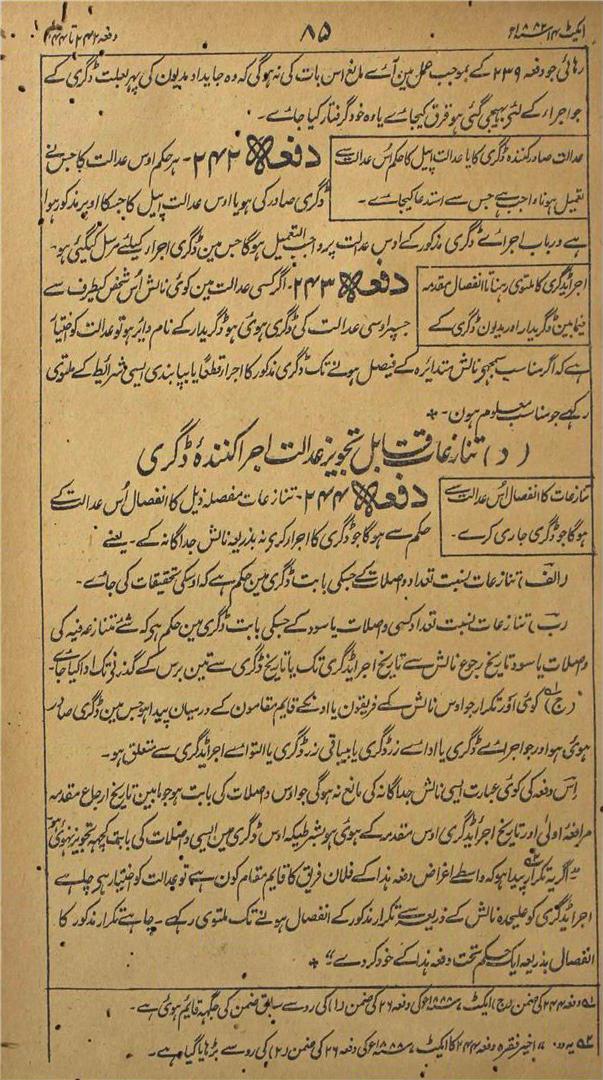 ایکٹ ۱۴ سنہ ۱۸۸۲ء
۸۵
دفعہ ۲۴۲ تا ۲۴۴
رہائی جو دفعہ ۲۳۹ کے بموجب عمل مین آئے مانع اس بات کی نہ ہوگی کہ وہ جایداد مدیون کی پھر بعلت ڈگری کے
جو اجراء کے لئے بہیجی گئی ہو قرق کیجائے یا وہ خود گرفتار کیا جائے۔
عدالت صادر کنندہ ڈگری کا یا عدالت اپیل کا حکم اُس عدالت سے
تعمیل ہونا واجب ہے جس سے استدعا کیجائے۔
دفعہ ۲۴۲۔ ہر حکم اوس عدالت کا جس نے
ڈگری صادر کی ہو یا اوس عدالت اپیل کا جسکا اوپر مذکور ہوا
ہے درباب اجراے ڈگری مذکور کے اوس عدالت پر واجب التعمیل ہوگا جس مین ڈگری اجرار کیلئے مرسل کیگئی ہو۔
اجراءڈگری کا ملتوی رہنا تا انفصال مقدمہ
فیمابین ڈگریدار اور مدیون ڈگری کے
دفعہ ۲۴۳۔ اگر کسی عدالت مین کوئی نالش اُس شخص کیطرف سے
جسپر اوسی عدالت کی ڈگری ہوئی ہو ڈگریدار کے نام دائر ہو تو عدالت کو اختیار
ہے کہ اگر مناسب سمجھے نالش متدائرہ کے فیصل ہونے تک ڈگری مذکور کا اجرار قطعًا یا بپابندی ایسی شرائط کے ملتوی
رکہے جو مناسب معلوم ہون۔
(د) تنازعات قابل تجویز عدالت اجرا کنندۂ ڈگری
تنازعات کا انفصال اُس عدالت سے
ہوگا جو ڈگری جاری کرے۔
دفعہ ۲۴۴۔ تنازعات مفصلہ ذیل کا انفصال اُس عدالت کے
حکم سے ہوگا جو ڈگری کا اجرار کری نہ بذریعہ نالش جداگانہ کے۔ یعنے
(الف) تنازعات بنسبت تعداد واصلات کے جسکی بابت ڈگری مین حکم ہے کہ اوسکی تحقیقات کی جائے۔
(ب) تنازعات بنسبت تعداد کسی واصلات یا سود کے جسکی بابت ڈگری مین حکم ہی کہ شئے متنازعہ فیہ کی
واصلات یا سود تاریخ رجوع نالش سے تاریخ اجراءڈگری تک یا تاریخ ڈگری سے تین برس کے گذرنے تک ادا کیا جائے۔
(ج) کوئی اَور تکرار جو اوس نالش کے فریقون یا اونکے قایم مقامون کے درمیان پیدا ہو جس مین ڈگری صادر
ہوئی ہو اور جو اجراے ڈگری یا اداے زر ڈگری یا بیباقی زر ڈگری یا التواے اجراءڈگری سے متعلق ہو۔
اِس دفعہ کی کوئی عبارت ایسی نالش جداگانہ کی مانع نہ ہوگی جو اوس واصلات کی بابت ہو جو مابین تاریخ ارجاع مقدمہ
مرافعۂ اولیٰ اور تاریخ اجراءڈگری اوس مقدمہ کے ہوئی ہو بشرطیکہ اوس ڈگری مین ایسی واصلات کی بابت کچھ تجویز نہوئی ہو۔
"اگر یہ تکرار پیدا ہو کہ واسطے اغراض دفعہ ہذا کے فلان فریق کا قایم مقام کون ہے تو عدالت کو اختیار ہی چاہے
اجراءڈگری کو علیحدہ نالش کے ذریعہ سے تکرار مذکور کے انفصال ہونے تک ملتوی رکہے۔ چاہے تکرار مذکور کا
انفصال بذریعہ ایک حکم تحت دفعہ ہذا کے خود کردے"
۵۱ دفعہ ۲۴۴ کی ضمن (ج) ایکٹ ۷ سنہ ۱۸۸۸ء کی دفعہ ۲۶ کی ضمن (۱) کی رو سے سابق ضمن کی جگہہ قایم ہوئی ہے۔
۵۲ اخیر فقرہ دفعہ ۲۴۴ کا ایکٹ ۷ سنہ ۱۸۸۸ء کی دفعہ ۲۶ کی ضمن (۲) کی رو سے بڑہایا گیا ہے۔